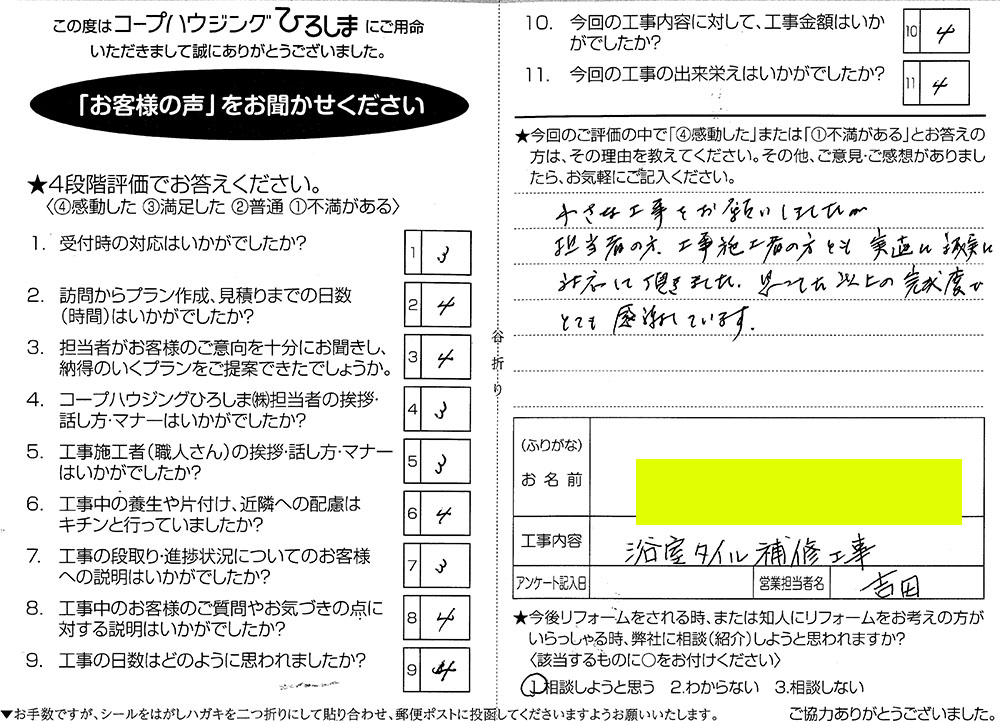 この度はコープハウジングひろしまにご用命
いただきまして誠にありがとうございました。
「お客様の声」をお聞かせください
★4段階評価でお答えください。
〈④感動した ③満足した ②普通 ①不満がある〉
1. 受付時の対応はいかがでしたか？
1 3
2. 訪問からプラン作成、見積りまでの日数
（時間）はいかがでしたか？
2 4
3. 担当者がお客様のご意向を十分にお聞きし、
納得のいくプランをご提案できたでしょうか。
3 4
4. コープハウジングひろしま㈱担当者の挨拶・
話し方・マナーはいかがでしたか？
4 3
5. 工事施工者（職人さん）の挨拶・話し方・マナー
はいかがでしたか？
5 3
6. 工事中の養生や片付け、近隣への配慮は
キチンと行っていましたか？
6 4
7. 工事の段取り・進捗状況についてのお客様
への説明はいかがでしたか？
7 3
8. 工事中のお客様のご質問やお気づきの点に
対する説明はいかがでしたか？
8 4
9. 工事の日数はどのように思われましたか？
9 4
▼お手数ですが、シールをはがしハガキを二つ折りにして貼り合わせ、郵便ポストに投函してくださいますようお願いいたします。
谷折り
10. 今回の工事内容に対して、工事金額はいか
がでしたか？
10 4
11. 今回の工事の出来栄えはいかがでしたか？
11 4
★今回のご評価の中で「④感動した」または「①不満がある」とお答えの
方は、その理由を教えてください。その他、ご意見・ご感想がありまし
たら、お気軽にご記入ください。
小さな工事をお願いしましたが
担当者の方、工事施工者の方とも実直に誠実に
対応して頂きました。思ってた以上の完成度で
とても感謝しています。
（ふりがな）
お名前
工事内容 浴室タイル補修工事
アンケート記入日 営業担当者名 吉田
★今後リフォームをされる時、または知人にリフォームをお考えの方が
いらっしゃる時、弊社に相談（紹介）しようと思われますか？
〈該当するものに○をお付けください〉
1.相談しようと思う 2.わからない 3.相談しない
ご協力ありがとうございました。